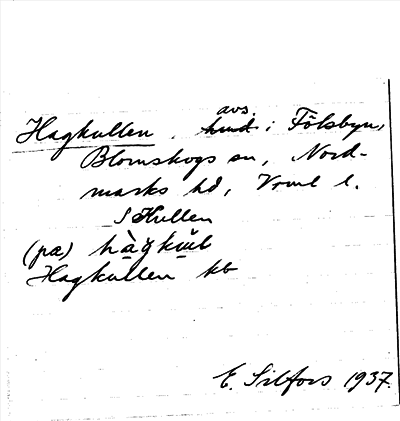 Hagkullen, avs. i Fölsbyn,
Blomskogs sn, Nord-
marks hd, Vrml l.
S Hullen
(pa)
Hagkullen kb
E. Silfors 1937.